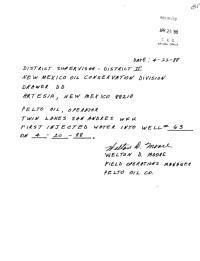 RECEIVED
APR 25 '88
O. C. D.
ARTESIA, OFFICE
DATE: 4-22-88
DISTRICT SUPERVISOR - DISTRICT II
NEW MEXICO OIL CONSERVATION DIVISION
DRAWER DD
ARTESIA, NEW MEXICO 88210
PELTO OIL, OPERATOR
TWIN LAKES SAN ANDRES UNIT
FIRST INJECTED WATER INTO WELL # 63
ON 4 - 20 - 88.
Welton D. Moore
WELTON D. MOORE
FIELD OPERATIONS MANAGER
PELTO OIL CO.